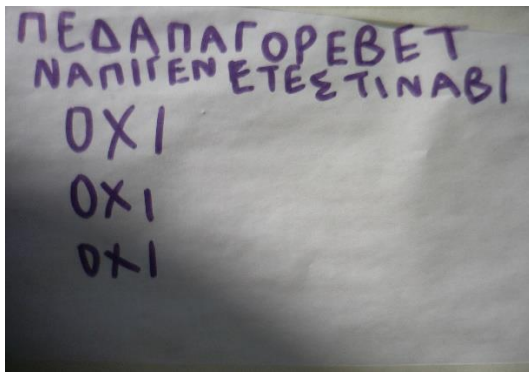 ΠΕΔΑΠΑΓΟΡΕΒΕΤ
ΝΑΠΙΓΕΝΕΤΕΣΤΙΝΑΒΙ
ΟΧΙ
ΟΧΙ
ΟΧΙ